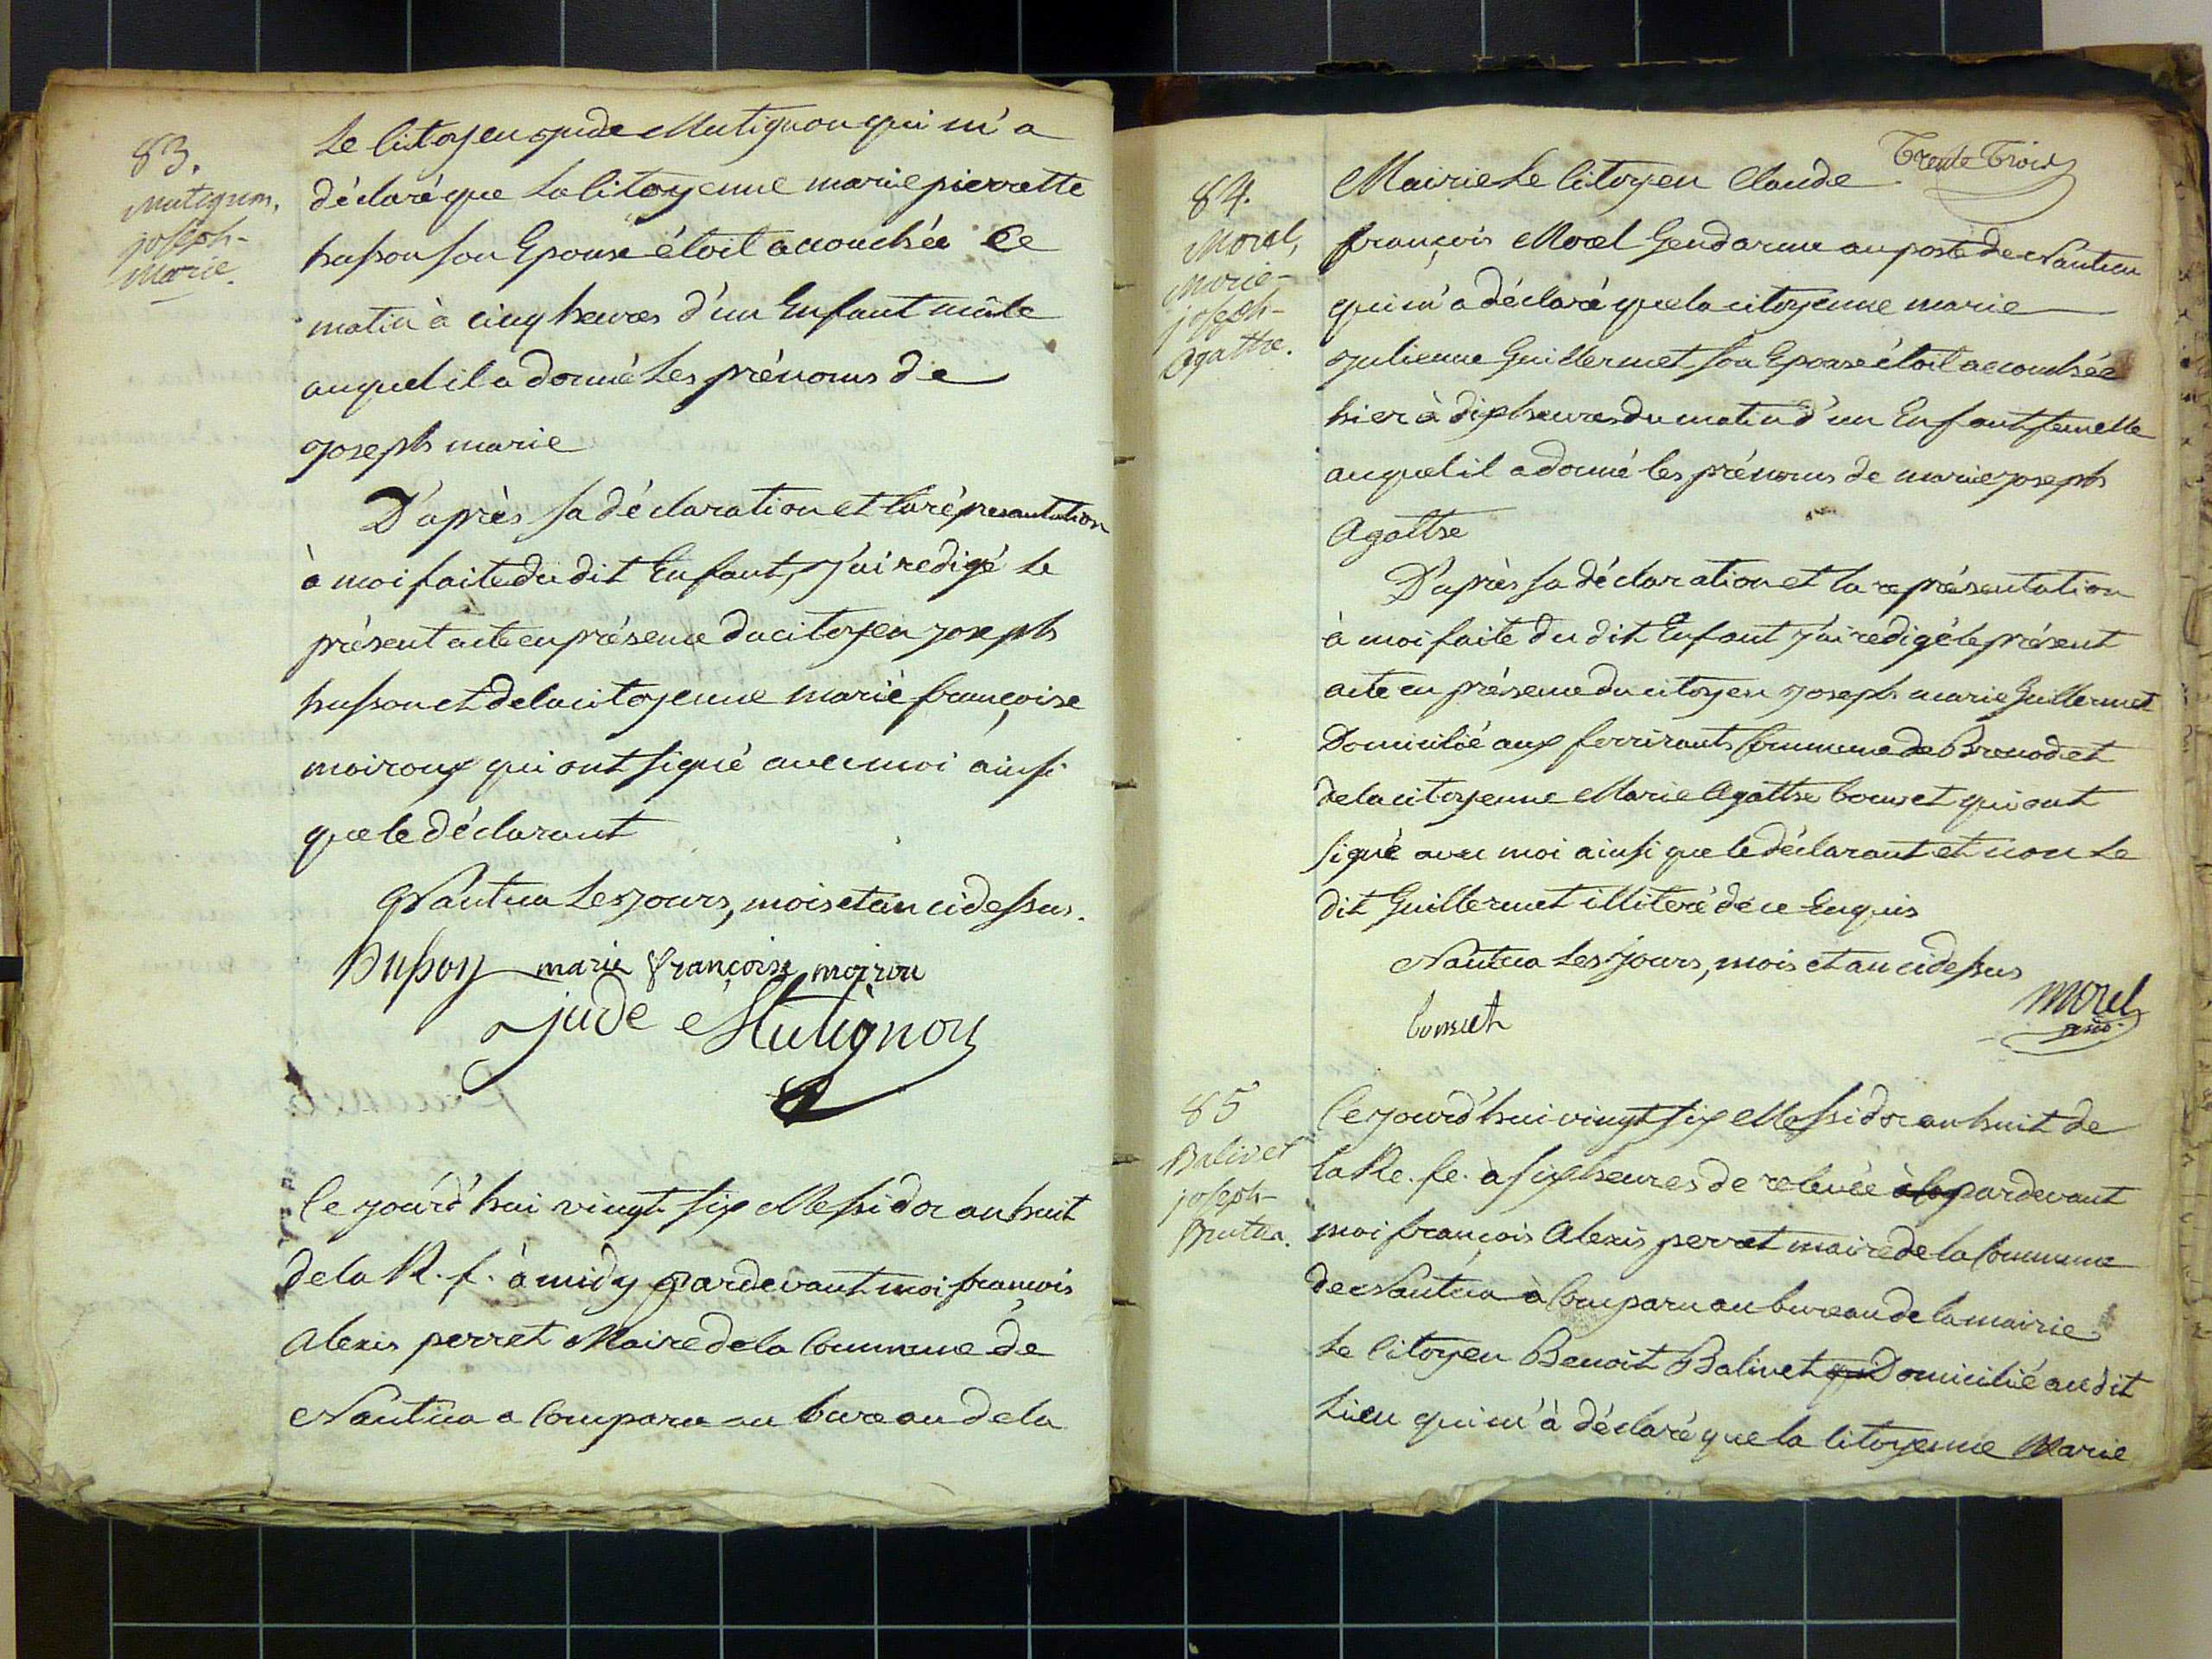 83.
Mutignon,
joseph-
marie.
Le Citoyen jude Mutignon qui m'a
déclaré que La Citoyenne marie pierrette
husson son Epouse étoit accouchée Ce
matin à cinq heures d'un Enfant mâle
auquel il a donné Les prénoms de
joseph marie
D'après sa déclaration et la réprésantation
à moi faite du dit Enfant, j'ai redigé Le
présent acte en présence du citoyen joseph
husson et de la citoyenne marie françoise
moiroux qui ont signé avec moi ainsi
que le déclarant
Nantua Les jours, mois et an ci dessus.
husson marie françoise moirou
jude Mutignon
Ce jourd'hui vingt six Messidor an huit
de la R. f. à midy pardevant moi françois
Alexis perret Maire de la Commune de
Nantua a Comparu au bureau de la
Trente Trois
84.
Morel,
marie-
joseph-
Agathe.
Mairie Le Citoyen Claude
françois Morel Gendarme au poste de Nantua
qui m'a déclaré que la citoyenne marie
julienne Guillermet son Epouse étoit accouchée
hier à dix heures du matin d'un Enfant femelle
auquel il a donné les prénoms de marie joseph
Agathe
D'après sa déclaration et la représentation
à moi faite du dit Enfant j'ai redigé le présent
acte en présence du citoyen joseph marie Guillermet
Domicilié aux ferrirants Commune de Brenod et
de la citoyenne Marie Agathe bonnet qui ont
signé avec moi ainsi que le déclarant et non Le
dit Guillermet illiteré de ce Enquis
Nantua Les jours, mois et an ci dessus
bonnet
Morel
85
Balivet
joseph-
Brutus.
Ce jourd'hui vingt six Messidor an huit de
la Re. fe. à six heures de relevée à la pardevant
moi françois Alexis perret maire de la Commune
de Nantua à Comparu au bureau de la mairie
Le Citoyen Benoit Balivet qui Domicilié au dit
Lieu qui m'à déclaré que la Citoyenne Marie